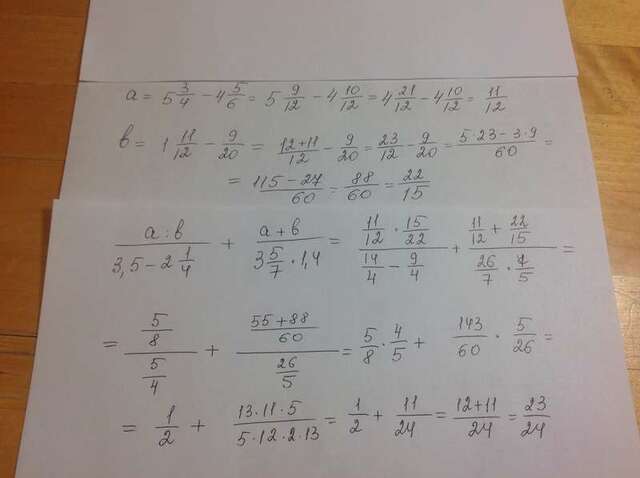 a = 5 3/4 − 4 5/6 = 5 9/12 − 4 10/12 = 4 21/12 − 4 10/12 = 11/12
b = 1 11/12 − 9/20 = (12+11)/12 − 9/20 = 23/12 − 9/20 = (5·23−3·9)/60 =
= (115−27)/60 = 88/60 = 22/15
(a:b)/(3,5−2 1/4) + (a+b)/(3 5/7 · 1,4) = (11/12 · 15/22)/(14/4 − 9/4) + (11/12 + 22/15)/(26/7 · 7/5) =
= (5/8)/(5/4) + ((55+88)/60)/(26/5) = 5/8 · 4/5 + 143/60 · 5/26 =
= 1/2 + (13·11·5)/(5·12·2·13) = 1/2 + 11/24 = (12+11)/24 = 23/24